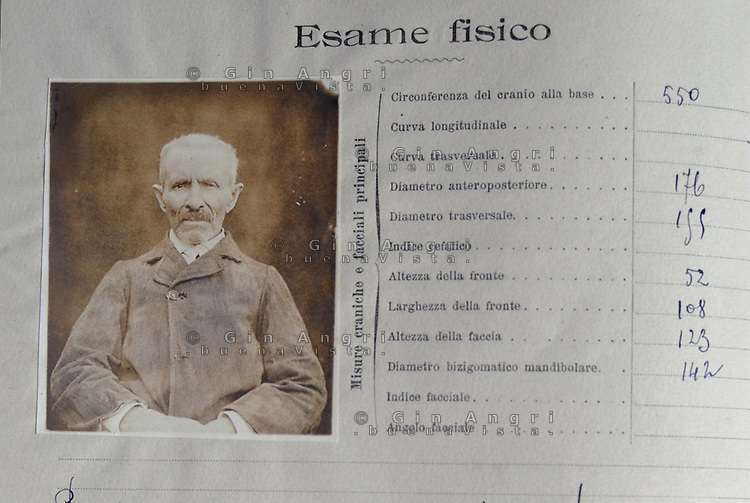 Esame fisico
© Gin Angri
.buenaVista.
Misure craniche e facciali principali
Circonferenza del cranio alla base . . . 550
Curva longitudinale . . . . . . . . . . . .
© Gin Angri
Curva trasversale . . . . . . . . . . . .
.buenaVista.
Diametro anteroposteriore . . . . . . . . 176
Diametro trasversale. . . . . . . . . . . 155
© Gin Angri
Indice cefalico . . . . . . . . . . . .
.buenaVista.
Altezza della fronte . . . . . . . . . . 52
Larghezza della fronte . . . . . . . . . 108
© Gin Angri
Altezza della faccia . . . . . . . . . . 123
.buenaVista.
Diametro bizigomatico mandibolare. . . . 142
Indice facciale . . . . . . . . . . . .
© Gin Angri
Angolo facciale . . . . . . . . . . . .
.buenaVista.